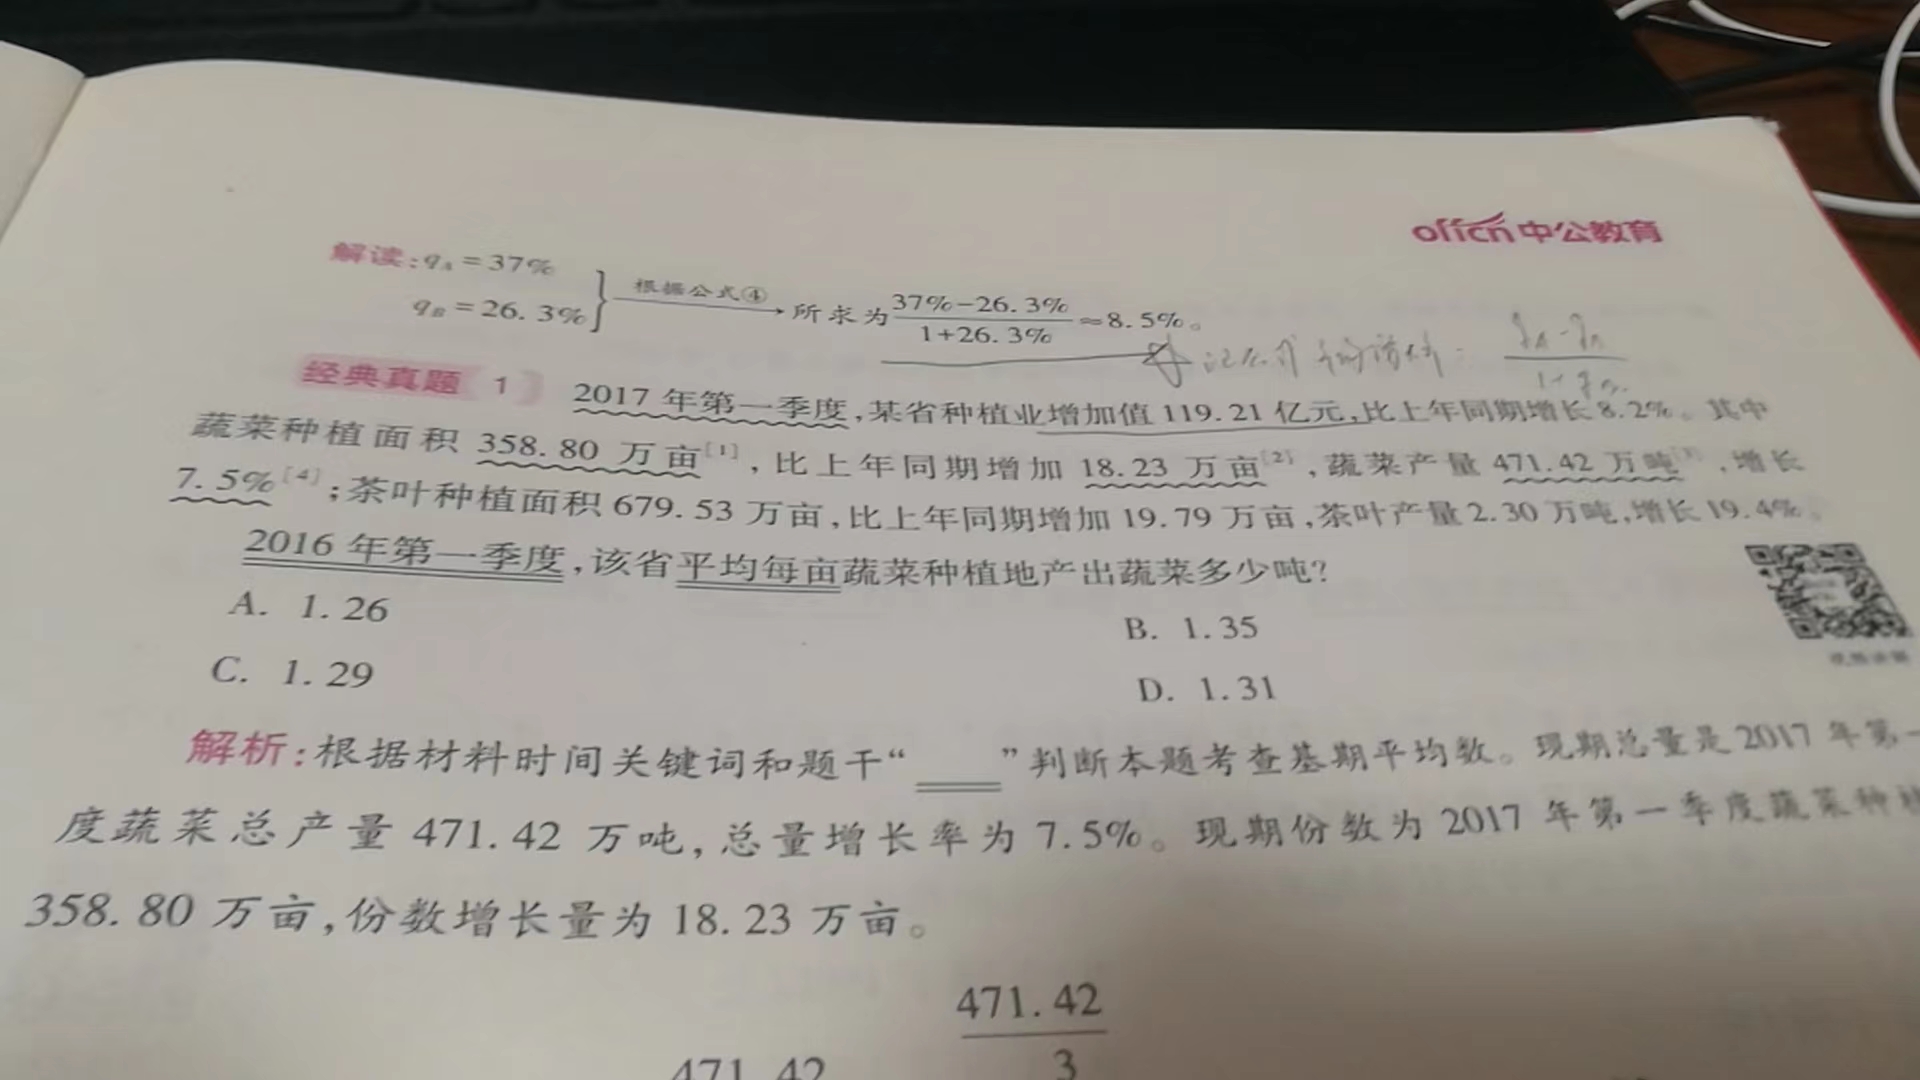 offcn中公教育
解读:qA=37%
qB=26.3%} 根据公式④ 所求为 (37%-26.3%)/(1+26.3%) ≈8.5%。
经典真题 1 2017年第一季度,某省种植业增加值119.21亿元,比上年同期增长8.2%。其中
蔬菜种植面积358.80万亩[1],比上年同期增加18.23万亩[2],蔬菜产量471.42万吨[3],增长
7.5%[4];茶叶种植面积679.53万亩,比上年同期增加19.79万亩,茶叶产量2.30万吨,增长19.4%。
2016年第一季度,该省平均每亩蔬菜种植地产出蔬菜多少吨?
A. 1.26
B. 1.35
C. 1.29
D. 1.31
解析:根据材料时间关键词和题干“ ”判断本题考查基期平均数。现期总量是2017年第一
度蔬菜总产量471.42万吨,总量增长率为7.5%。现期份数为2017年第一季度蔬菜种
358.80万亩,份数增长量为18.23万亩。
471.42
3
471.42